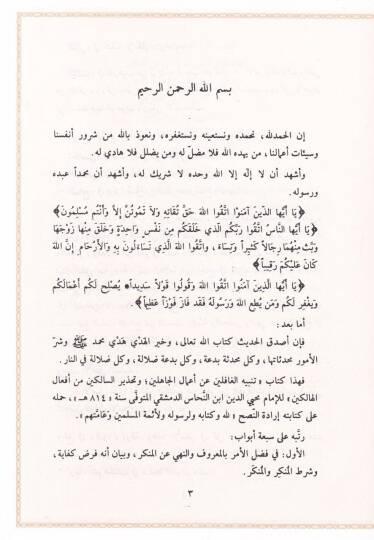 بسم الله الرحمن الرحيم
إن الحمدلله، نحمده ونستعينه ونستغفره، ونعوذ بالله من شرور أنفسنا
وسيئات أعمالنا، من يهده الله فلا مضلّ له ومن يضلل فلا هادي له.
وأشهد أن لا إله إلا الله وحده لا شريك له، وأشهد أن محمداً عبده
ورسوله.
﴿يَا أَيُّها الذينَ آمَنُوا اتَّقُوا اللهَ حَقَّ تُقَاتِهِ وَلاَ تَمُوتُنَّ إلاَّ وَأَنْتُم مُسْلِمُونَ﴾
﴿يَا أَيُّها النَّاسُ اتَّقُوا رَبَّكُمُ الَّذي خَلَقَكُم مِن نَفْسٍ وَاحِدَةٍ وَخَلَقَ مِنْها زَوْجَهَا
وَبَثَّ مِنْهُمَا رِجَالاً كَثِيراً وَنِسَاءً، وَاتَّقُوا اللهَ الَّذِي تَسَاءَلُونَ بِهِ وَالأَرْحَامَ إنَّ اللهَ
كَانَ عَلَيْكُمْ رَقِيباً﴾
﴿يَا أَيُّها الَّذِينَ آمَنُوا اتَّقُوا اللهَ وَقُولُوا قَوْلاً سَدِيداً* يُصْلِح لَكُم أَعْمَالَكُم
وَيَغْفِر لَكُم وَمَن يُطِعِ اللهَ وَرَسُولَهُ فَقَد فَازَ فَوْزاً عَظِيماً﴾.
أما بعد:
فإن أصدق الحديث كتاب الله تعالى، وخير الهَدْي هَدْي محمد ﷺ وشرّ
الأمور محدثاتها، وكل محدثة بدعة، وكل بدعة ضلالة، وكل ضلالة في النار.
فهذا كتاب « تنبيه الغافلين عن أعمال الجاهلين؛ وتحذير السالكين من أفعال
الهالكين » للإمام محيي الدين ابن النَّحاس الدمشقي المتوفَّى سنة « ٨١٤هـ »، حمله
على كتابته إرادة النُّصح « لله وكتابه ولرسوله ولأئمة المسلمين وَعَامَّتهم ».
رتَّبه على سبعة أبواب:
الأول: في فضل الأمر بالمعروف والنهي عن المنكر، وبيان أنه فرض كفاية،
وشرط المنكِر والمنكَر.
٣